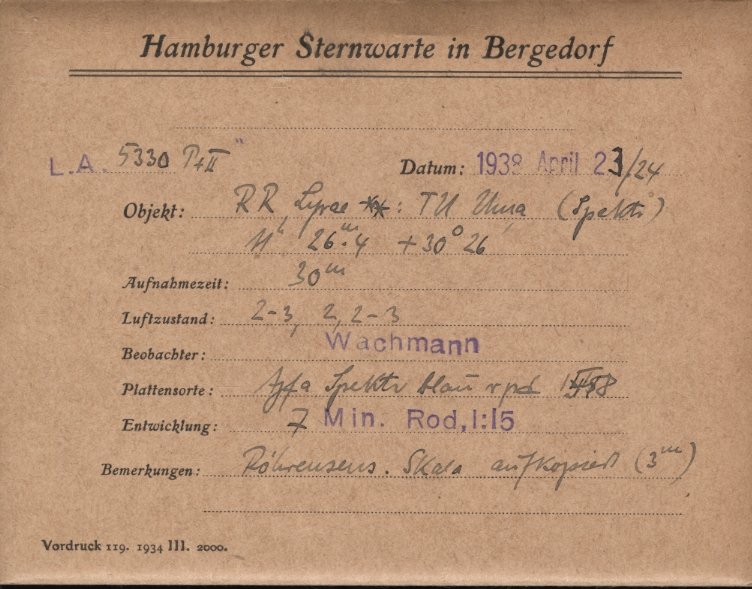 Hamburger Sternwarte in Bergedorf
L.A. 5330 P+II
Datum: 1938 April 23/24
Objekt: RR Lyrae **: TU Uma (Spektr)
11h 26m.4 +30° 26
Aufnahmezeit: 30m
Luftzustand: 2-3, 2, 2-3
Beobachter: Wachmann
Plattensorte: Agfa Spektr blau
Entwicklung: 7 Min. Rod, 1:15
Bemerkungen: Röhrensens. Skala aufkopiert (3m)
Vordruck 119. 1934 III. 2000.